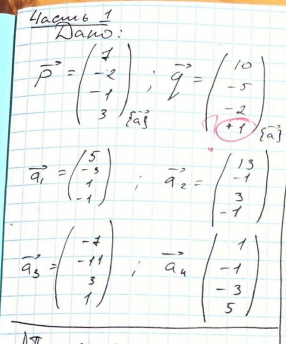 Часть 1
Дано:
p⃗ = (7 -2 -1 3){a⃗} ; q⃗ = (10 -5 -2 +1){a⃗}
a⃗₁ = (5 -3 1 -1) ; a⃗₂ = (13 -1 3 -1)
a⃗₃ = (-7 -11 3 1) ; a⃗₄ (1 -1 -3 5)